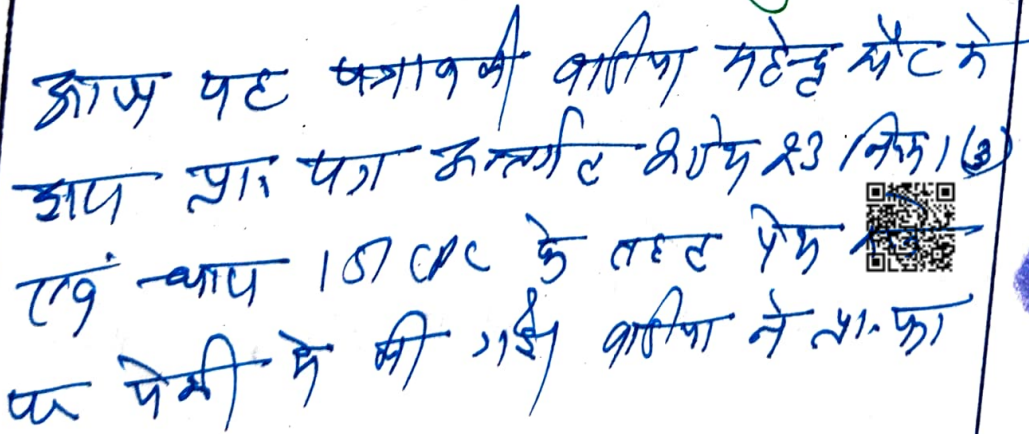 आज यह पत्रावली वादीया महेन्द्र कौर ने
प्रा. पत्र अन्तर्गत आदेश 23 नियम 1 (3)
एवं धारा 151 CPC के तहत पेश करने
पर पेशी में ली गई। वादीया ने प्रा. पत्र